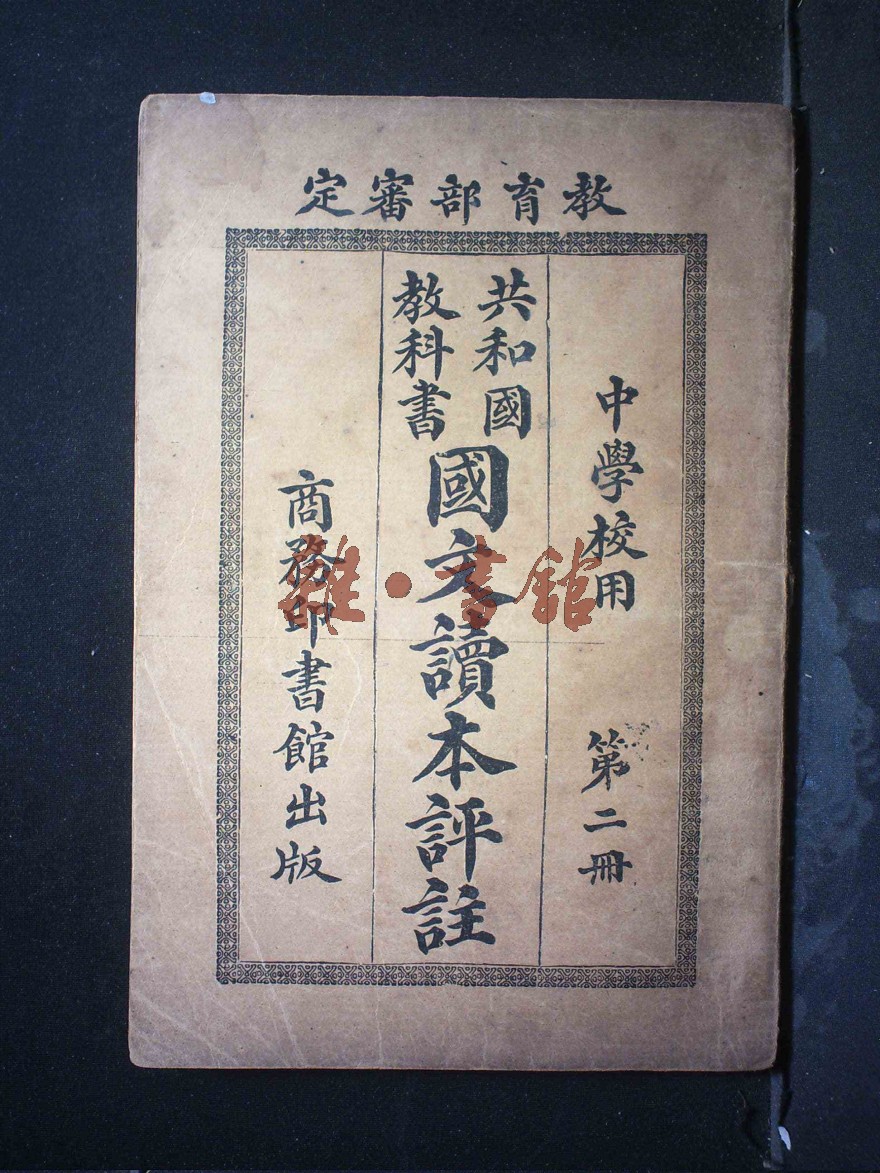 教育部審定
中學校用　第二冊
共和國
教科書
國文讀本評註
商務印書館出版
雜·書館